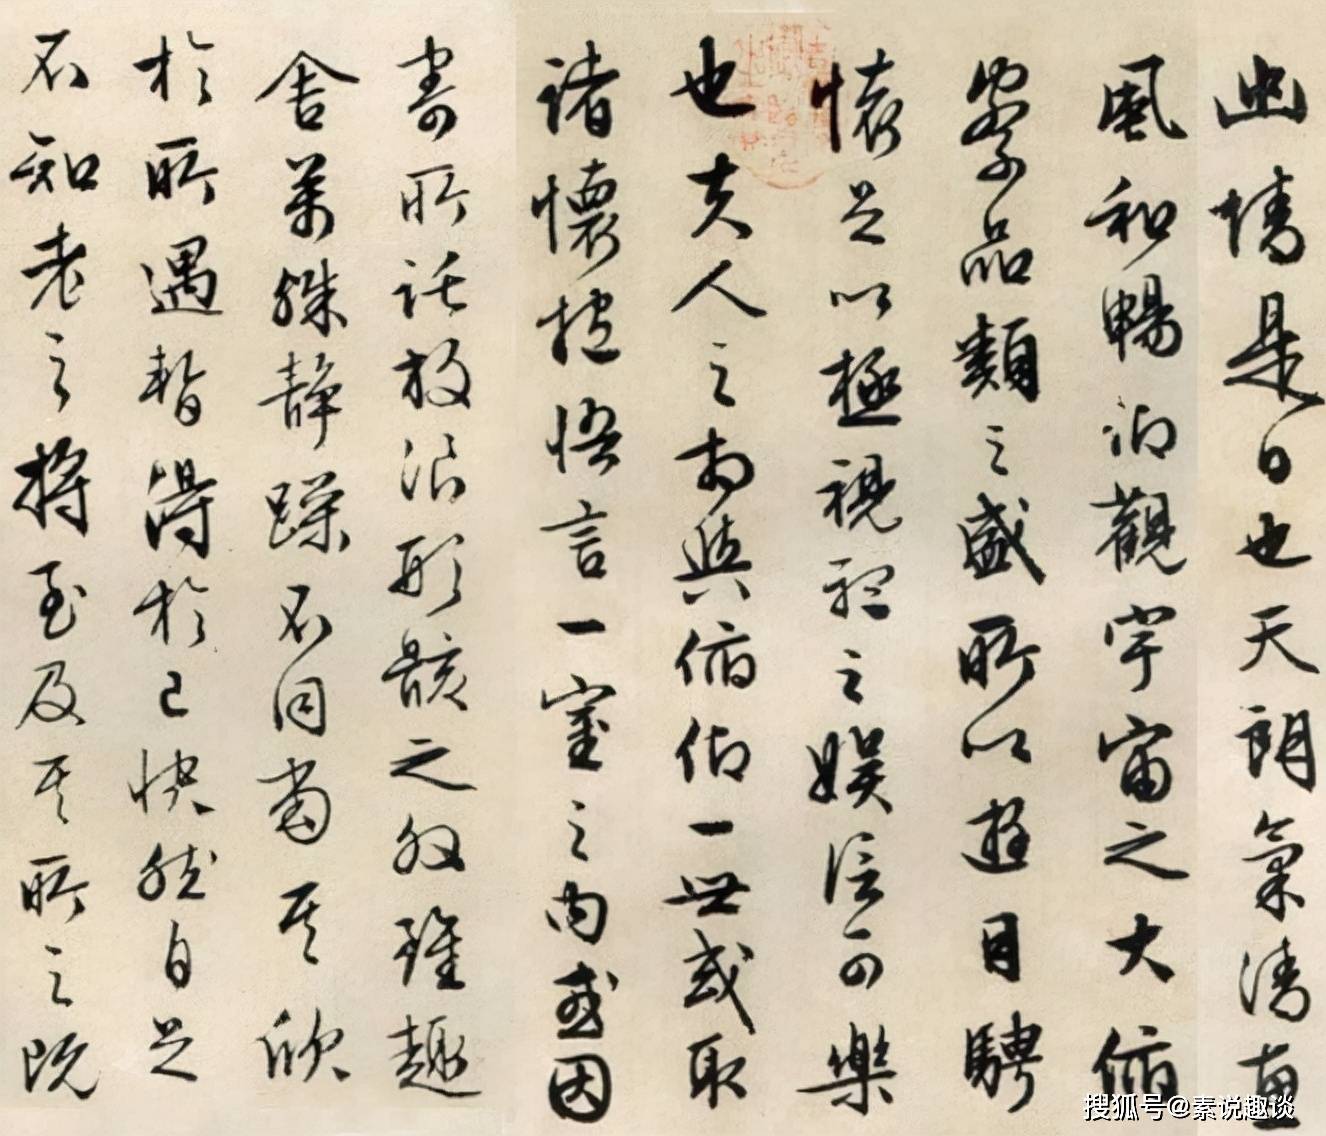 幽情是日也天朗氣清惠
風和暢仰觀宇宙之大俯
察品類之盛所以遊目騁
懷足以極視聽之娛信可樂
也夫人之相與俯仰一世或取
諸懷抱悟言一室之內或因
寄所託放浪形骸之外雖趣
舍萬殊靜躁不同當其欣
於所遇暫得於己快然自足
不知老之將至及其所之既
搜狐号@素说趣谈